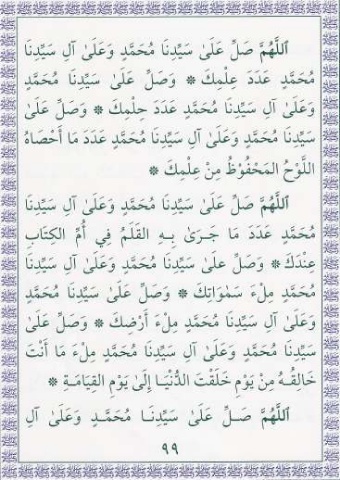 اَللَّهُمَّ صَلِّ عَلَىٰ سَيِّدِنَا مُحَمَّدٍ وَعَلَىٰ آلِ سَيِّدِنَا
مُحَمَّدٍ عَدَدَ عِلْمِكَ ۞ وَصَلِّ عَلَىٰ سَيِّدِنَا مُحَمَّدٍ
وَعَلَىٰ آلِ سَيِّدِنَا مُحَمَّدٍ عَدَدَ حِلْمِكَ ۞ وَصَلِّ عَلَىٰ
سَيِّدِنَا مُحَمَّدٍ وَعَلَىٰ آلِ سَيِّدِنَا مُحَمَّدٍ عَدَدَ مَا أَحْصَاهُ
اللَّوْحُ المَحْفُوظُ مِنْ عِلْمِكَ ۞
اَللَّهُمَّ صَلِّ عَلَىٰ سَيِّدِنَا مُحَمَّدٍ وَعَلَىٰ آلِ سَيِّدِنَا
مُحَمَّدٍ عَدَدَ مَا جَرَىٰ بِهِ القَلَمُ فِي أُمِّ الكِتَابِ
عِنْدَكَ ۞ وَصَلِّ عَلىٰ سَيِّدِنَا مُحَمَّدٍ وَعَلَىٰ آلِ سَيِّدِنَا
مُحَمَّدٍ مِلْءَ سَمٰوَاتِكَ ۞ وَصَلِّ عَلَىٰ سَيِّدِنَا مُحَمَّدٍ
وَعَلَىٰ آلِ سَيِّدِنَا مُحَمَّدٍ مِلْءَ أَرْضِكَ ۞ وَصَلِّ عَلَىٰ
سَيِّدِنَا مُحَمَّدٍ وَعَلَىٰ آلِ سَيِّدِنَا مُحَمَّدٍ مِلْءَ مَا أَنْتَ
خَالِقُهُ مِنْ يَوْمِ خَلَقْتَ الدُّنْيَا إِلَىٰ يَوْمِ القِيَامَةِ ۞
اَللَّهُمَّ صَلِّ عَلَىٰ سَيِّدِنَا مُحَمَّدٍ وَعَلَىٰ آلِ
٩٩